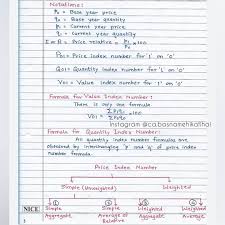 Notations:
p₀ = Base year price
q₀ = Base year quantity
p₁ = Current year price
q₁ = Current year quantity
I or R = Price relative = p₁/p₀ x100
P01 = Price index number for '1' on '0'
Q01 = Quantity index number for '1' on '0'
V01 = Value index number for '1' on '0'
Formula for Value Index Number:
There is only one formula.
V01 = Σp₁q₁/Σp₀q₀ x100
Instagram @ca.basnamehikafihai
Formula for Quantity Index Number:
An quantity index number formula are
obtained by interchanging 'p' and 'q' of price index
number formula.
Price Index Number
Simple (Unweighted) Weighted
① ② ③ ④
NICE Simple Simple Weighted Weighted
Aggregate Average of Aggregate Average
Relative